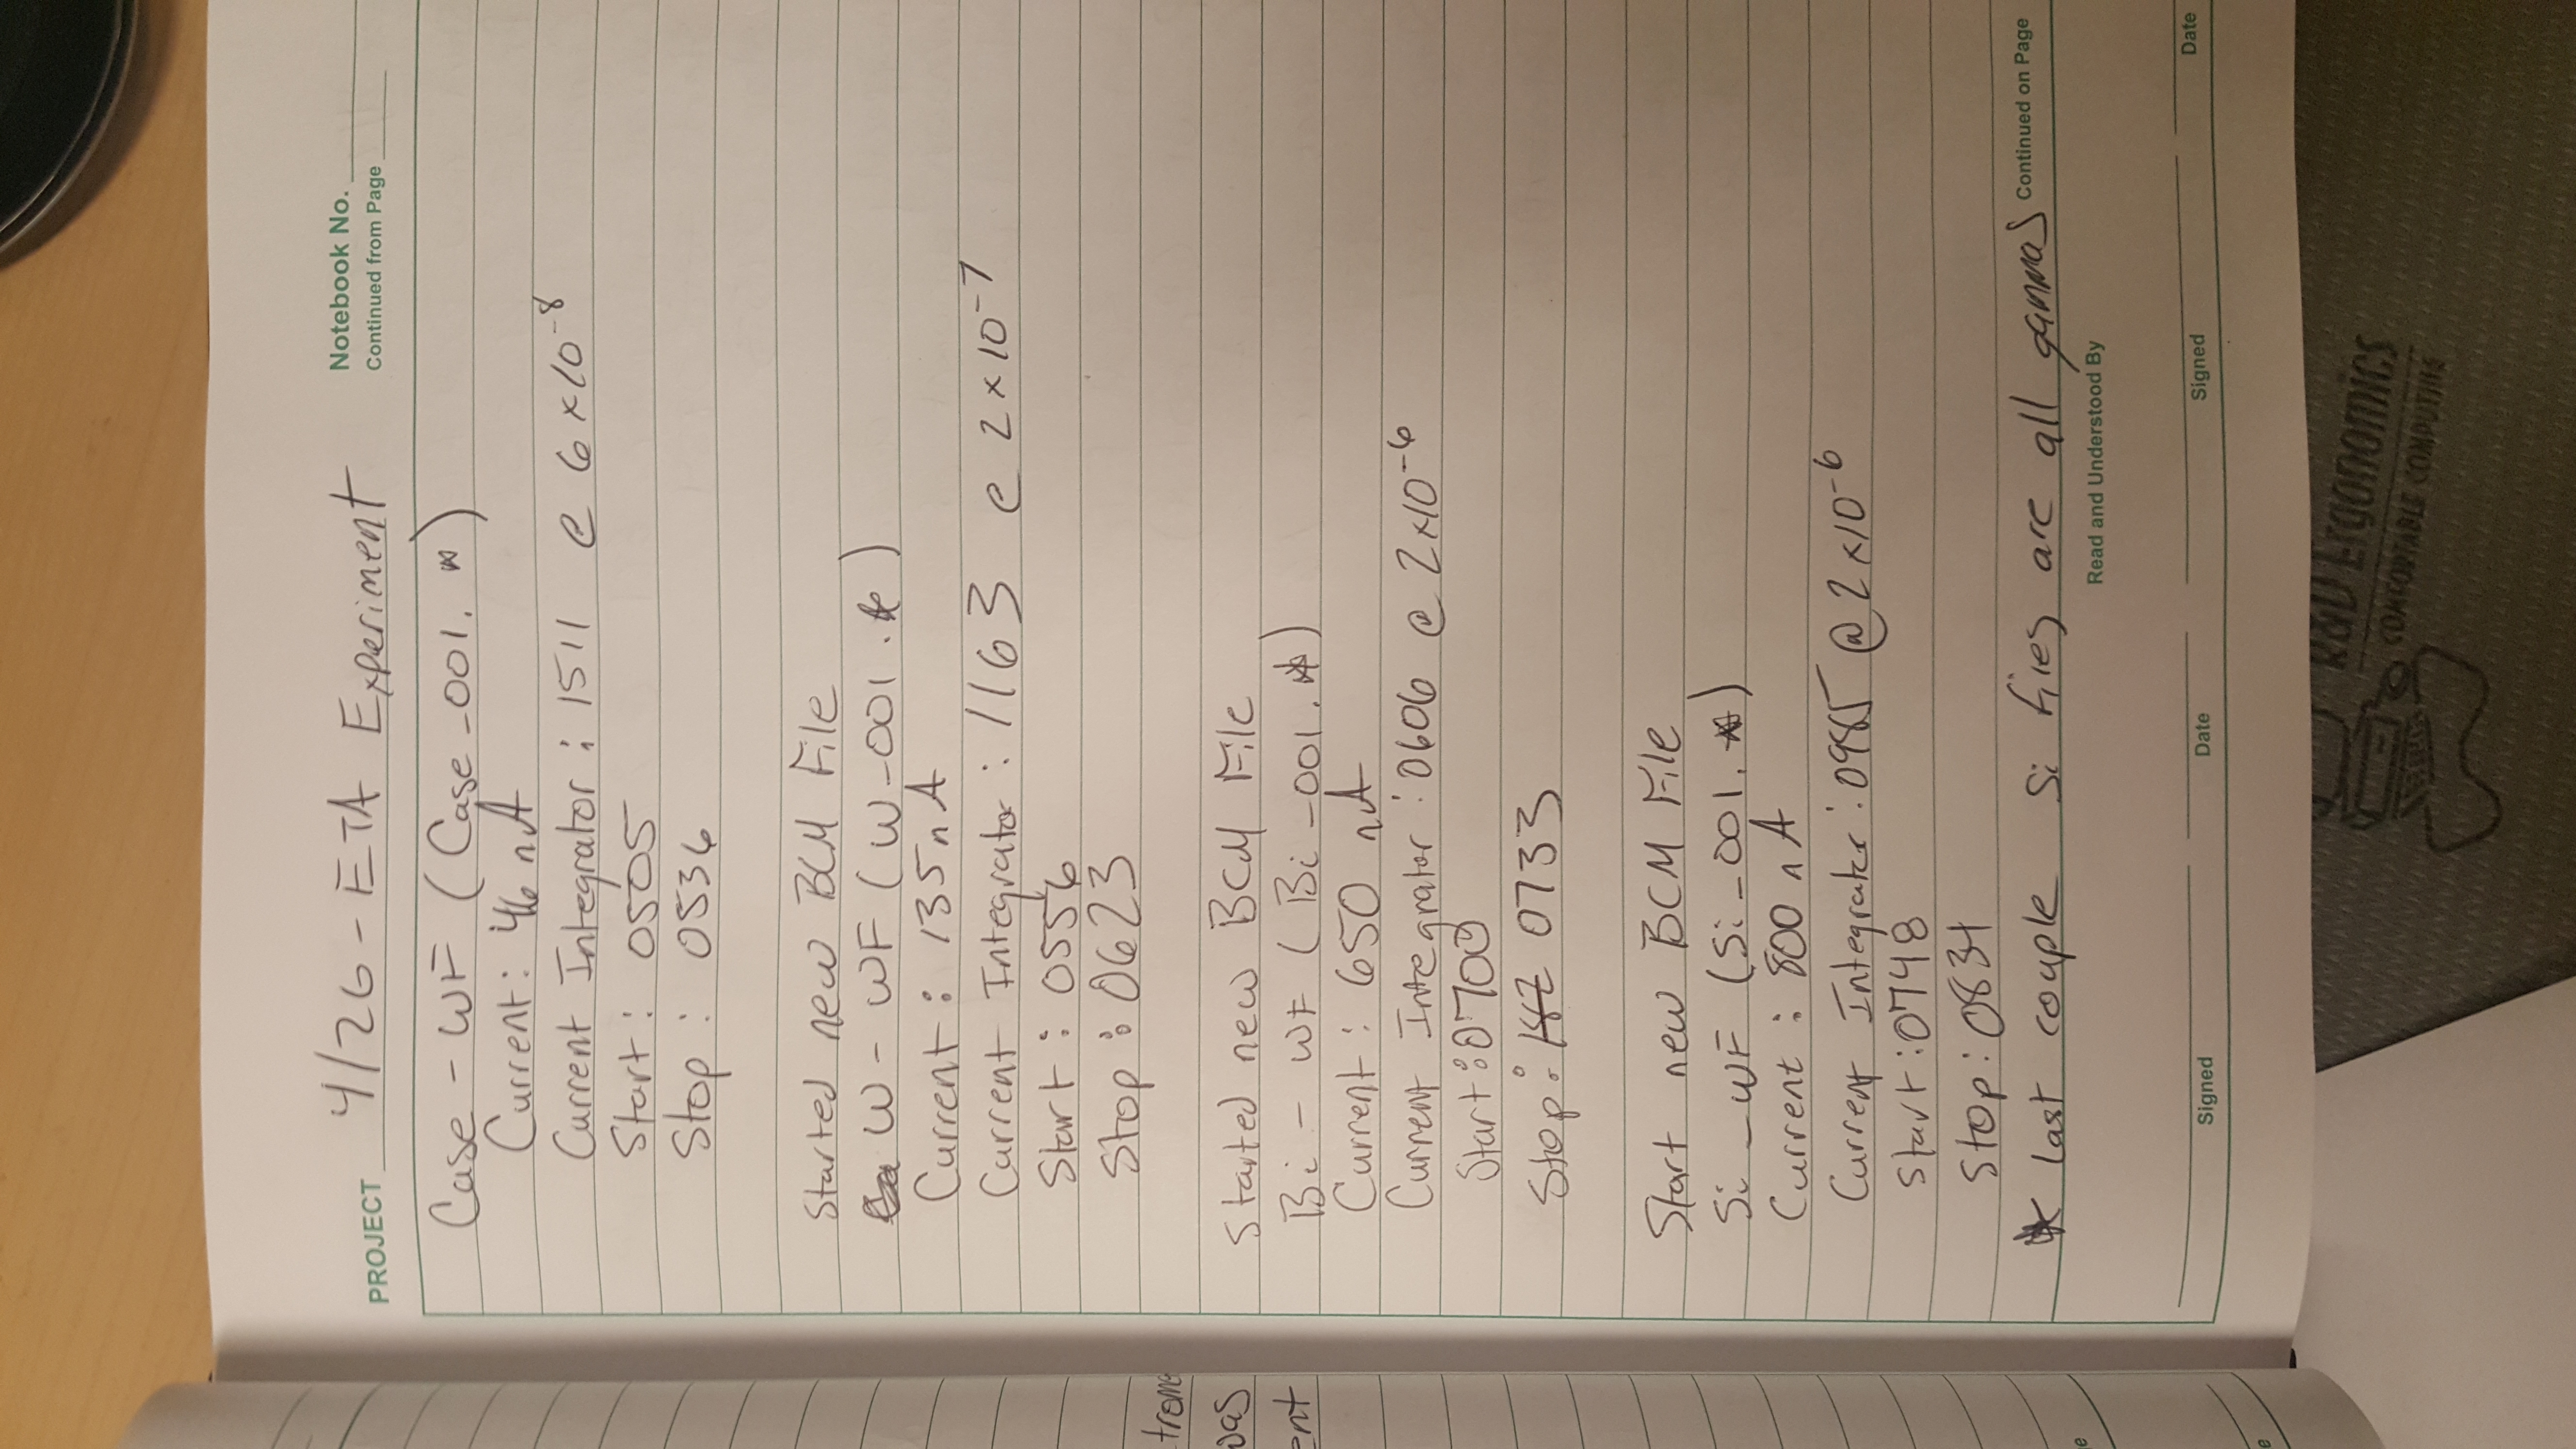 PROJECT 4/26 - ETA Experiment
Notebook No.
Continued from Page
Case - WF (Case_001.*)
Current: 46 nA
Current Integrator: 1511 @ 6x10^-8
Start: 0505
Stop: 0536
Started new BCM File
W - WF (W_001.*)
Current: 135 nA
Current Integrator: 1163 @ 2x10^-7
Start: 0556
Stop: 0623
Started new BCM File
Bi - WF (Bi_001.*)
Current: 650 nA
Current Integrator: 0606 @ 2x10^-6
Start: 0700
Stop: 0733
Start new BCM File
Si_WF (Si_001.*)
Current: 800 nA
Current Integrator: 0985 @ 2x10^-6
Start: 0748
Stop: 0831
* last couple Si files are all gammas
Continued on Page
Read and Understood By
Signed
Date
Signed
Date
ent
was
Ergonomics
COMFORTABLE COMPUTING